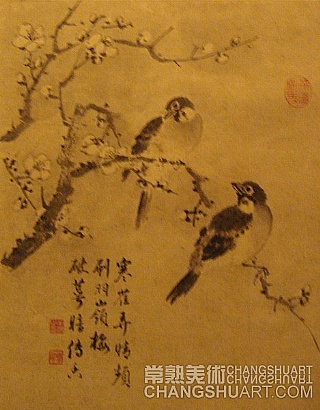 寒雀弄晴頻
刷羽嶺梅
破萼暗傳香
常熟美術 CHANGSHUART
CHANGSHUART.COM